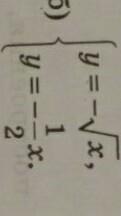 б) { y = -√x,
y = -1/2 x.